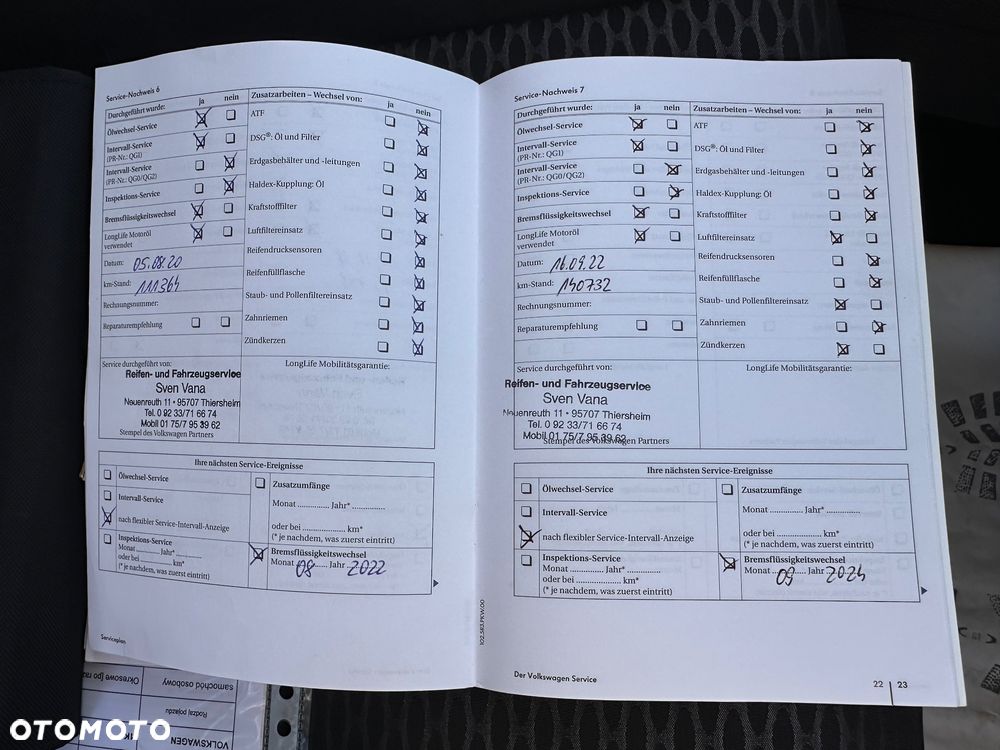 Service-Nachweis 6
Durchgeführt wurde: ja nein
Ölwechsel-Service
Intervall-Service
(PR-Nr.: QG1)
Intervall-Service
(PR-Nr.: QG0/QG2)
Inspektions-Service
Bremsflüssigkeitswechsel
LongLife Motoröl
verwendet
Datum: 05.08.20
km-Stand: 111364
Rechnungsnummer:
Reparaturempfehlung
Zusatzarbeiten – Wechsel von: ja nein
ATF
DSG®: Öl und Filter
Erdgasbehälter und -leitungen
Haldex-Kupplung: Öl
Kraftstofffilter
Luftfiltereinsatz
Reifendrucksensoren
Reifenfüllflasche
Staub- und Pollenfiltereinsatz
Zahnriemen
Zündkerzen
Service durchgeführt von:
Reifen- und Fahrzeugservice
Sven Vana
Neuenreuth 11 • 95707 Thiersheim
Tel. 0 92 33/71 66 74
Mobil 01 75/7 95 39 62
Stempel des Volkswagen Partners
LongLife Mobilitätsgarantie:
Ihre nächsten Service-Ereignisse
Ölwechsel-Service
Intervall-Service
nach flexibler Service-Intervall-Anzeige
Inspektions-Service
Monat ........... Jahr* ..............
oder bei .................... km*
(* je nachdem, was zuerst eintritt)
Zusatzumfänge
Monat .............. Jahr* ..............
oder bei .................... km*
(* je nachdem, was zuerst eintritt)
Bremsflüssigkeitswechsel
Monat 08 Jahr 2022
Serviceplan
Service-Nachweis 7
Durchgeführt wurde: ja nein
Ölwechsel-Service
Intervall-Service
(PR-Nr.: QG1)
Intervall-Service
(PR-Nr.: QG0/QG2)
Inspektions-Service
Bremsflüssigkeitswechsel
LongLife Motoröl
verwendet
Datum: 16.09.22
km-Stand: 140732
Rechnungsnummer:
Reparaturempfehlung
Zusatzarbeiten – Wechsel von: ja nein
ATF
DSG®: Öl und Filter
Erdgasbehälter und -leitungen
Haldex-Kupplung: Öl
Kraftstofffilter
Luftfiltereinsatz
Reifendrucksensoren
Reifenfüllflasche
Staub- und Pollenfiltereinsatz
Zahnriemen
Zündkerzen
Service durchgeführt von:
Reifen- und Fahrzeugservice
Sven Vana
Neuenreuth 11 • 95707 Thiersheim
Tel. 0 92 33/71 66 74
Mobil 01 75/7 95 39 62
Stempel des Volkswagen Partners
LongLife Mobilitätsgarantie:
Ihre nächsten Service-Ereignisse
Ölwechsel-Service
Intervall-Service
nach flexibler Service-Intervall-Anzeige
Inspektions-Service
Monat .............. Jahr* ..............
oder bei .................... km*
(* je nachdem, was zuerst eintritt)
Zusatzumfänge
Monat .............. Jahr* ..............
oder bei .................... km*
(* je nachdem, was zuerst eintritt)
Bremsflüssigkeitswechsel
Monat 09 Jahr 2024
102.5R3.PKW.00
Der Volkswagen Service
22 | 23
samochód osobowy
Rodzaj pojazdu
VOLKSWAGEN
OTOMOTO